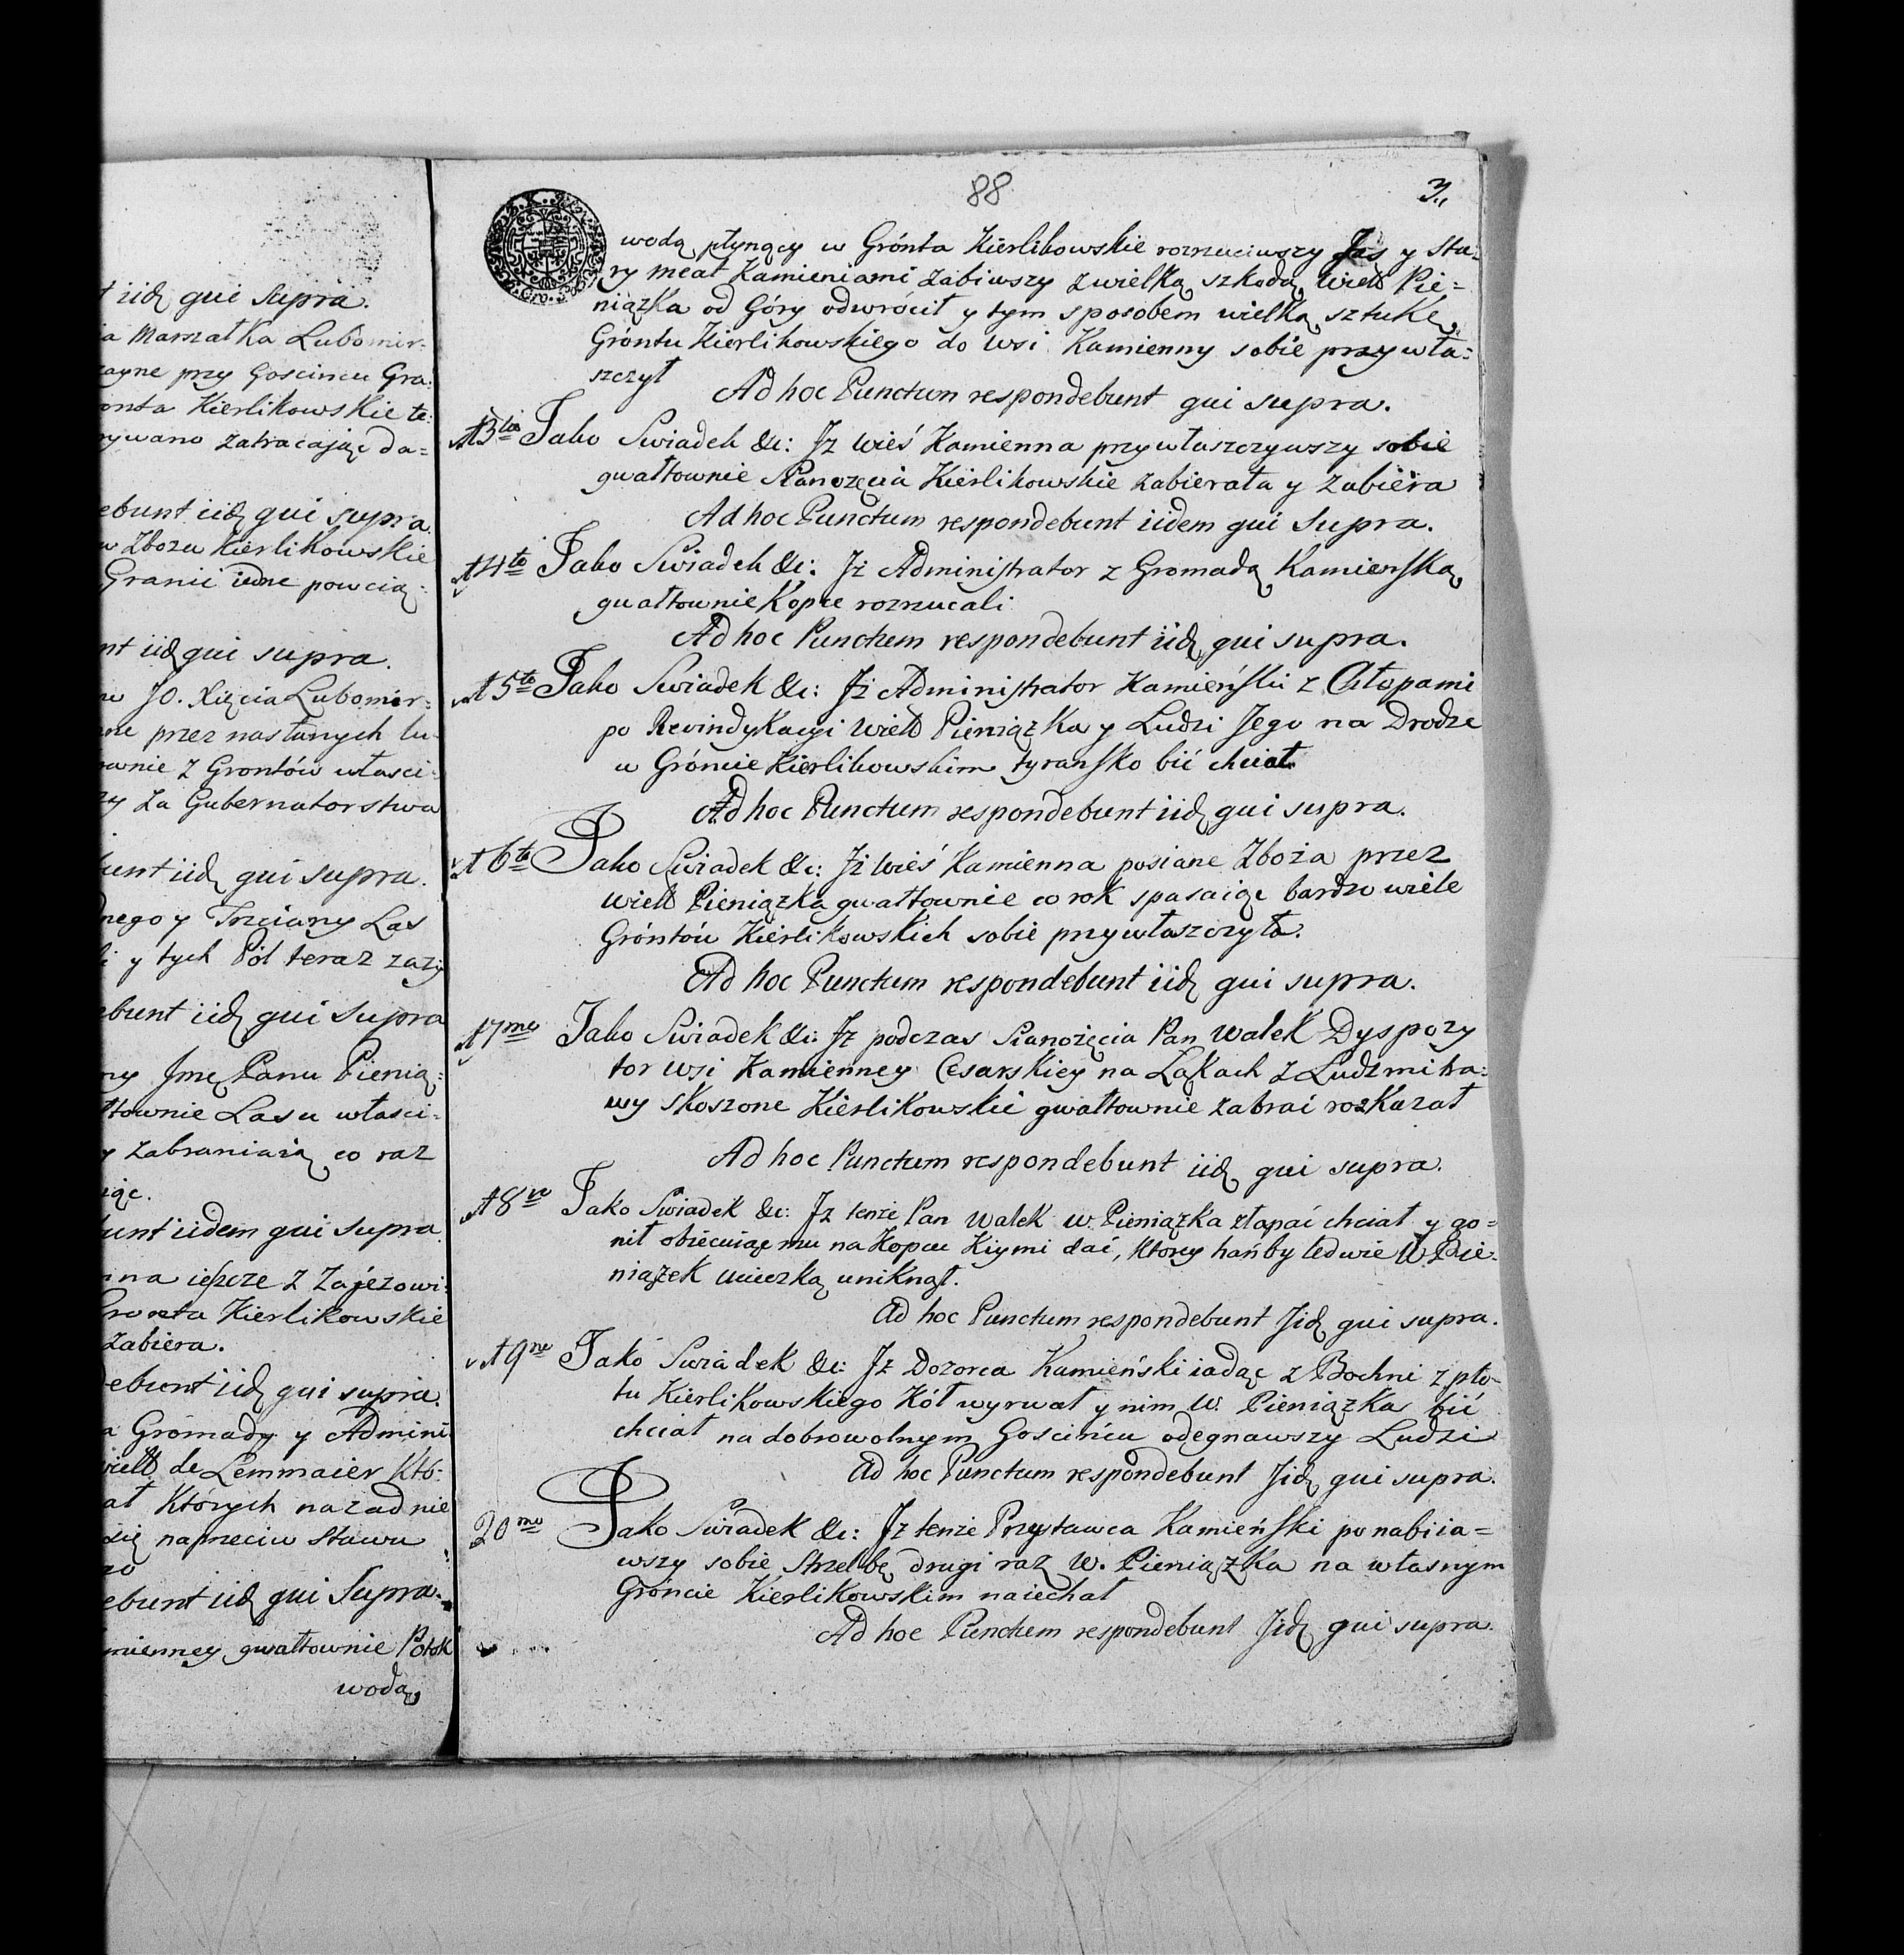 t iidę qui Supra.
a Marszałka Lubomir-
ayne przy Goscincu Gra:
onta Kierlikowskie te:
rywano zatracając da=
ebunt iidę qui supra.
w Zboża Kierlikowskie
Granic idne powcią-
nt iidę qui supra.
w JO. Xięcia Lubomir-
ne przez nasłanych lu
ownie z Grontów własci-
zy za Gubernatorstwa
bunt iidę qui supra.
dnego y Trzciany Las
i y tych Pól teraz zaży
ebunt iidę qui Supra
ny Jmę Panu Pienią:
townie Lasu własci-
y zabraniaią co raz
iąc.
bunt iidem qui supra
nna ieszcze z Zajezowi:
Gronta Kierlikowskie
zabiera.
debunt iidę qui supra.
a Gromady y Admini
wielb de Lemmaier Któ-
at Których nazad nie
się naprzeciw Stawu
zo
ebunt iidę qui Supra.
mienney gwałtownie Potok
wodą,
88
3.
wodą płynący w Grónta Kierlikowskie rozrzuciwszy Jas y Sta-
ry meat Kamieniami zabiwszy z wielką szkodą Wielb Pie=
niązka od Góry odwrócił y tym sposobem wielką sztukę
Gróntu Kierlikowskiego do Wsi Kamienny sobie przywła=
szczył
Ad hoc Punctum respondebunt qui supra.
13tio Jako Swiadek &c: Jz wieś Kamienna przywłaszczywszy sobie
gwałtownie Sianozęcia Kierlikowskie zabierała y zabiera
Ad hoc Punctum respondebunt iidem qui Supra.
14to Jako Swiadek &c: Jż Administrator z Gromadą Kamieńską
gwałtownie Kopce rozrzucali
Ad hoc Punctum respondebunt iidę qui supra.
15to Jako Swiadek &c: Jż Administrator Kamieński z Chłopami
po Rewindykacyi Wielb Pieniązka y Ludzi Jego na Drodze
w Gróncie Kierlikowskim tyrańsko bić chciał.
Ad hoc Punctum respondebunt iidę qui supra.
16to Jako Swiadek &c: Jż wieś Kamienna posiane Zboża przez
Wielb Pieniązka gwałtownie co rok spasaiąc bardzo wiele
Gróntów Kierlikowskich sobie przywłaszczyła.
Ad hoc Punctum respondebunt iidę qui supra.
17mo Jako Swiadek &c: Jż podczas Sianożęcia Pan Walek Dyspozy
tor wsi Kamienney Cesarskiey na Łąkach z Ludzmi tra:
wy skoszone Kierlikowskie gwałtownie zabrać rozkazał
Ad hoc Punctum respondebunt iidę qui supra.
18vo Jako Swiadek &c: Jż tenże Pan Walek W. Pieniązka złapać chciał y go=
nił obiecuiąc mu na Kopcu Kiymi dać, Ktorey hańby ledwie W. Pie-
niążek ucieczką uniknął.
Ad hoc Punctum respondebunt Jidę qui supra.
19no Jako Swiadek &c: Jż Dozorca Kamieński iadąc z Bochni z pło-
tu Kierlikowskiego Kół wyrwał y nim W. Pieniązka bić
chciał na dobrowolnym Gościńcu odegnawszy Ludzi
Ad hoc Punctum respondebunt Jidę qui supra.
20mo Jako Swiadek &c: Jż tenże Przystawca Kamieński ponabiia=
wszy sobie Strzelbę drugi raz W. Pieniązka na własnym
Gróncie Kierlikowskim naiechał
Ad hoc Punctum respondebunt Jidę qui supra.